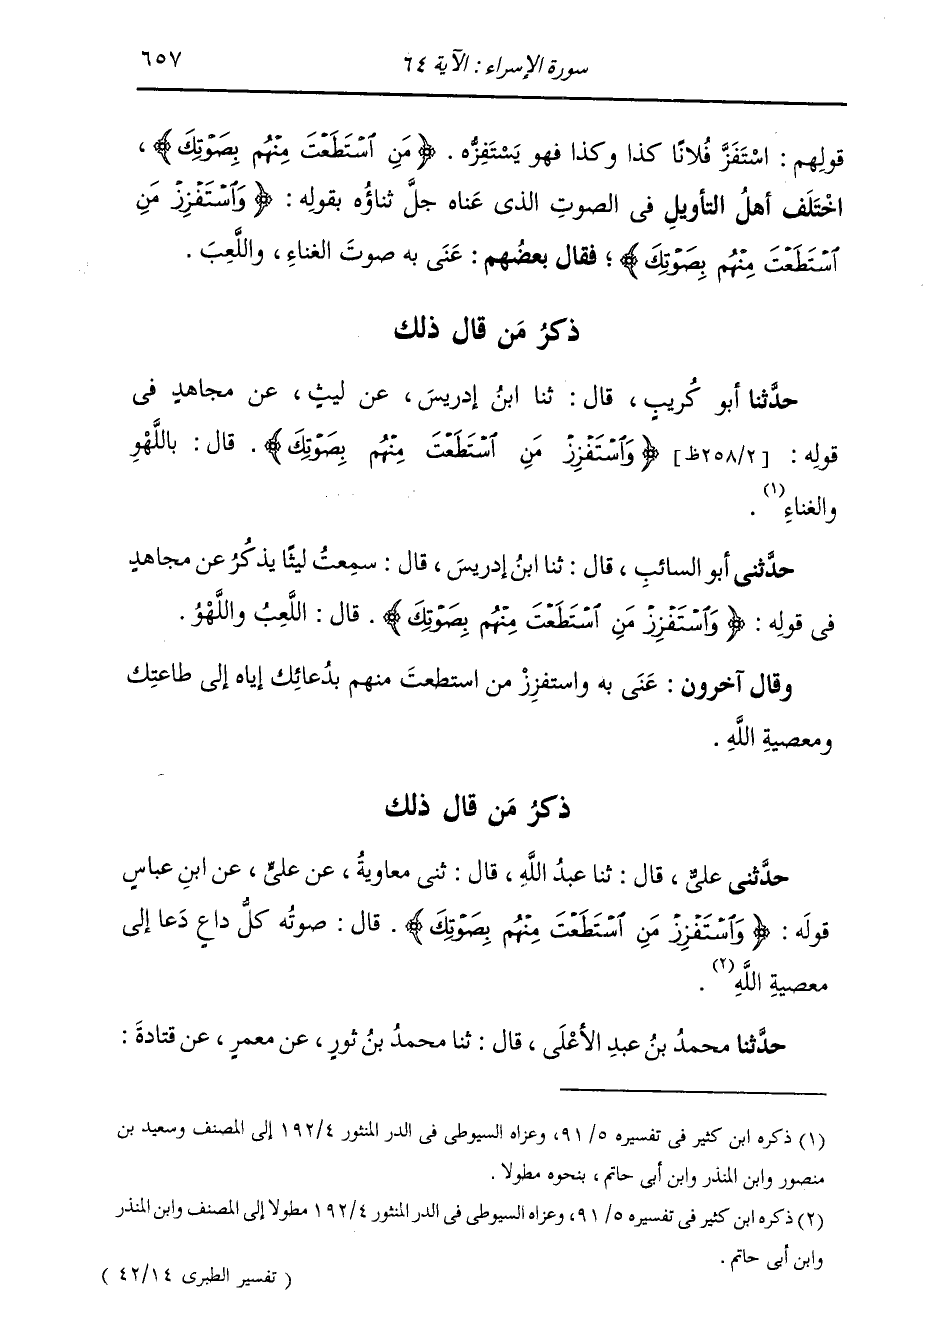 سورة الإسراء : الآية ٦٤ ٦٥٧
قولِهم : اسْتَفَزَّ فُلانًا كذا وكذا فهو يَسْتَفِزُّه . ﴿ مَنِ ٱسْتَطَعْتَ مِنْهُم بِصَوْتِكَ ﴾ ،
اخْتَلَف أهلُ التأويلِ فى الصوتِ الذى عَناه جلَّ ثناؤُه بقولِه : ﴿ وَٱسْتَفْزِزْ مَنِ
ٱسْتَطَعْتَ مِنْهُم بِصَوْتِكَ ﴾ ؛ فقال بعضُهم : عَنَى به صوتَ الغناءِ ، واللَّعِبَ .
ذكرُ مَن قال ذلك
حدَّثنا أبو كُريبٍ ، قال : ثنا ابنُ إدريسَ ، عن ليثٍ ، عن مجاهدٍ فى
قولِه : [٢٥٨/٢ظ] ﴿ وَٱسْتَفْزِزْ مَنِ ٱسْتَطَعْتَ مِنْهُم بِصَوْتِكَ ﴾ . قال : باللَّهْوِ
والغناءِ (١) .
حدَّثنى أبو السائبِ ، قال : ثنا ابنُ إدريسَ ، قال : سمِعتُ ليثًا يذكُرُ عن مجاهدٍ
فى قولِه : ﴿ وَٱسْتَفْزِزْ مَنِ ٱسْتَطَعْتَ مِنْهُم بِصَوْتِكَ ﴾ . قال : اللَّعِبُ واللَّهْوُ .
وقال آخرون : عَنَى به واستفزِزْ من استطعتَ منهم بدُعائِك إياه إلى طاعتِك
ومعصيةِ اللَّهِ .
ذكرُ مَن قال ذلك
حدَّثنى علىٌّ ، قال : ثنا عبدُ اللَّهِ ، قال : ثنى معاويةُ ، عن علىٍّ ، عن ابنِ عباسٍ
قولَه : ﴿ وَٱسْتَفْزِزْ مَنِ ٱسْتَطَعْتَ مِنْهُم بِصَوْتِكَ ﴾ . قال : صوتُه كلُّ داعٍ دَعا إلى
معصيةِ اللَّهِ (٢) .
حدَّثنا محمدُ بنُ عبدِ الأعْلَى ، قال : ثنا محمدُ بنُ ثورٍ ، عن معمرٍ ، عن قتادةَ :
(١) ذكره ابن كثير فى تفسيره ٥/ ٩١، وعزاه السيوطى فى الدر المنثور ١٩٢/٤ إلى المصنف وسعيد بن
منصور وابن المنذر وابن أبى حاتم ، بنحوه مطولا .
(٢) ذكره ابن كثير فى تفسيره ٥/ ٩١، وعزاه السيوطى فى الدر المنثور ١٩٢/٤ مطولا إلى المصنف وابن المنذر
وابن أبى حاتم .
( تفسير الطبرى ٤٢/١٤ )